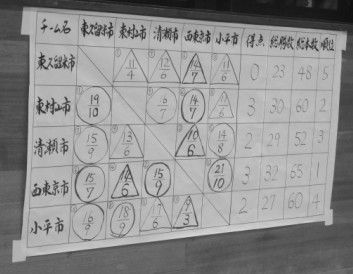 チーム名 東久留米市 東村山市 清瀬市 西東京市 小平市 得点 総勝数 総本数 順位
東久留米市 11/4 12/6 11/6 0 23 48 5
東村山市 19/10 16/7 14/7 3 30 60 2
清瀬市 15/9 13/6 10/6 14/8 2 29 52 3
西東京市 15/7 15/9 21/10 3 32 65 1
小平市 16/9 18/9 17/6 9/3 2 27 60 4